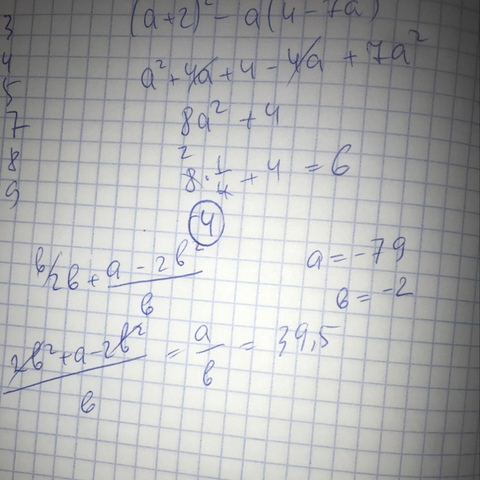 3 (a+2)² - a(4-7a)
4 a² + 4a + 4 - 4a + 7a²
5
7 8a² + 4
8 2
8 · 1/4 + 4 = 6
9
4
b/2b + (a - 2b²)/b a = -79
b = -2
(2b² + a - 2b²)/b = a/b = 39,5